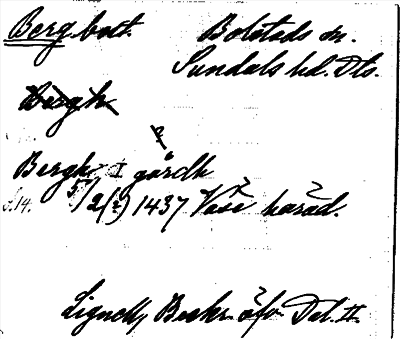 Berg. bott. Bolstads sn.
Sundals hd. Dls.
Bergh
?
Bergh I gårdh
5/2(?) 1437 Vase harad.
s.14.
Lignell, Beskr. öfv. Dal. II.